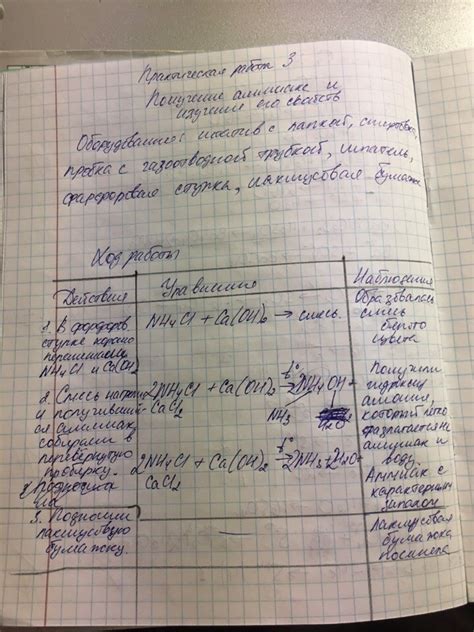 Практическая работа 3
Получение аммиака и
изучение его свойств
Оборудование: штатив с лапкой, спиртовка,
пробка с газоотводной трубкой, шпатель,
фарфоровая ступка, лакмусовая бумажка
Ход работы
Действия
Уравнения
Наблюдения
1. В фарфоров.
ступке хорошо
перемешали
NH4Cl и Ca(OH)2
NH4Cl + Ca(OH)2 → смесь.
Образовалась
смесь
белого
цвета
2. Смесь нагрели
и получивший-
ся аммиак
собирали в
перевернутую
пробирку.
2NH4Cl + Ca(OH)2 t° → 2NH4OH +
CaCl2
NH3
H2O
2NH4Cl + Ca(OH)2 t° → 2NH3 + 2H2O
CaCl2
Получили
гидроксид
аммония,
который легко
разлагается на
аммиак и
воду.
Аммиак с
характерным
запахом
3. Поднесли
лакмусовую
бумажку.
—
Лакмусовая
бумажка
посинела